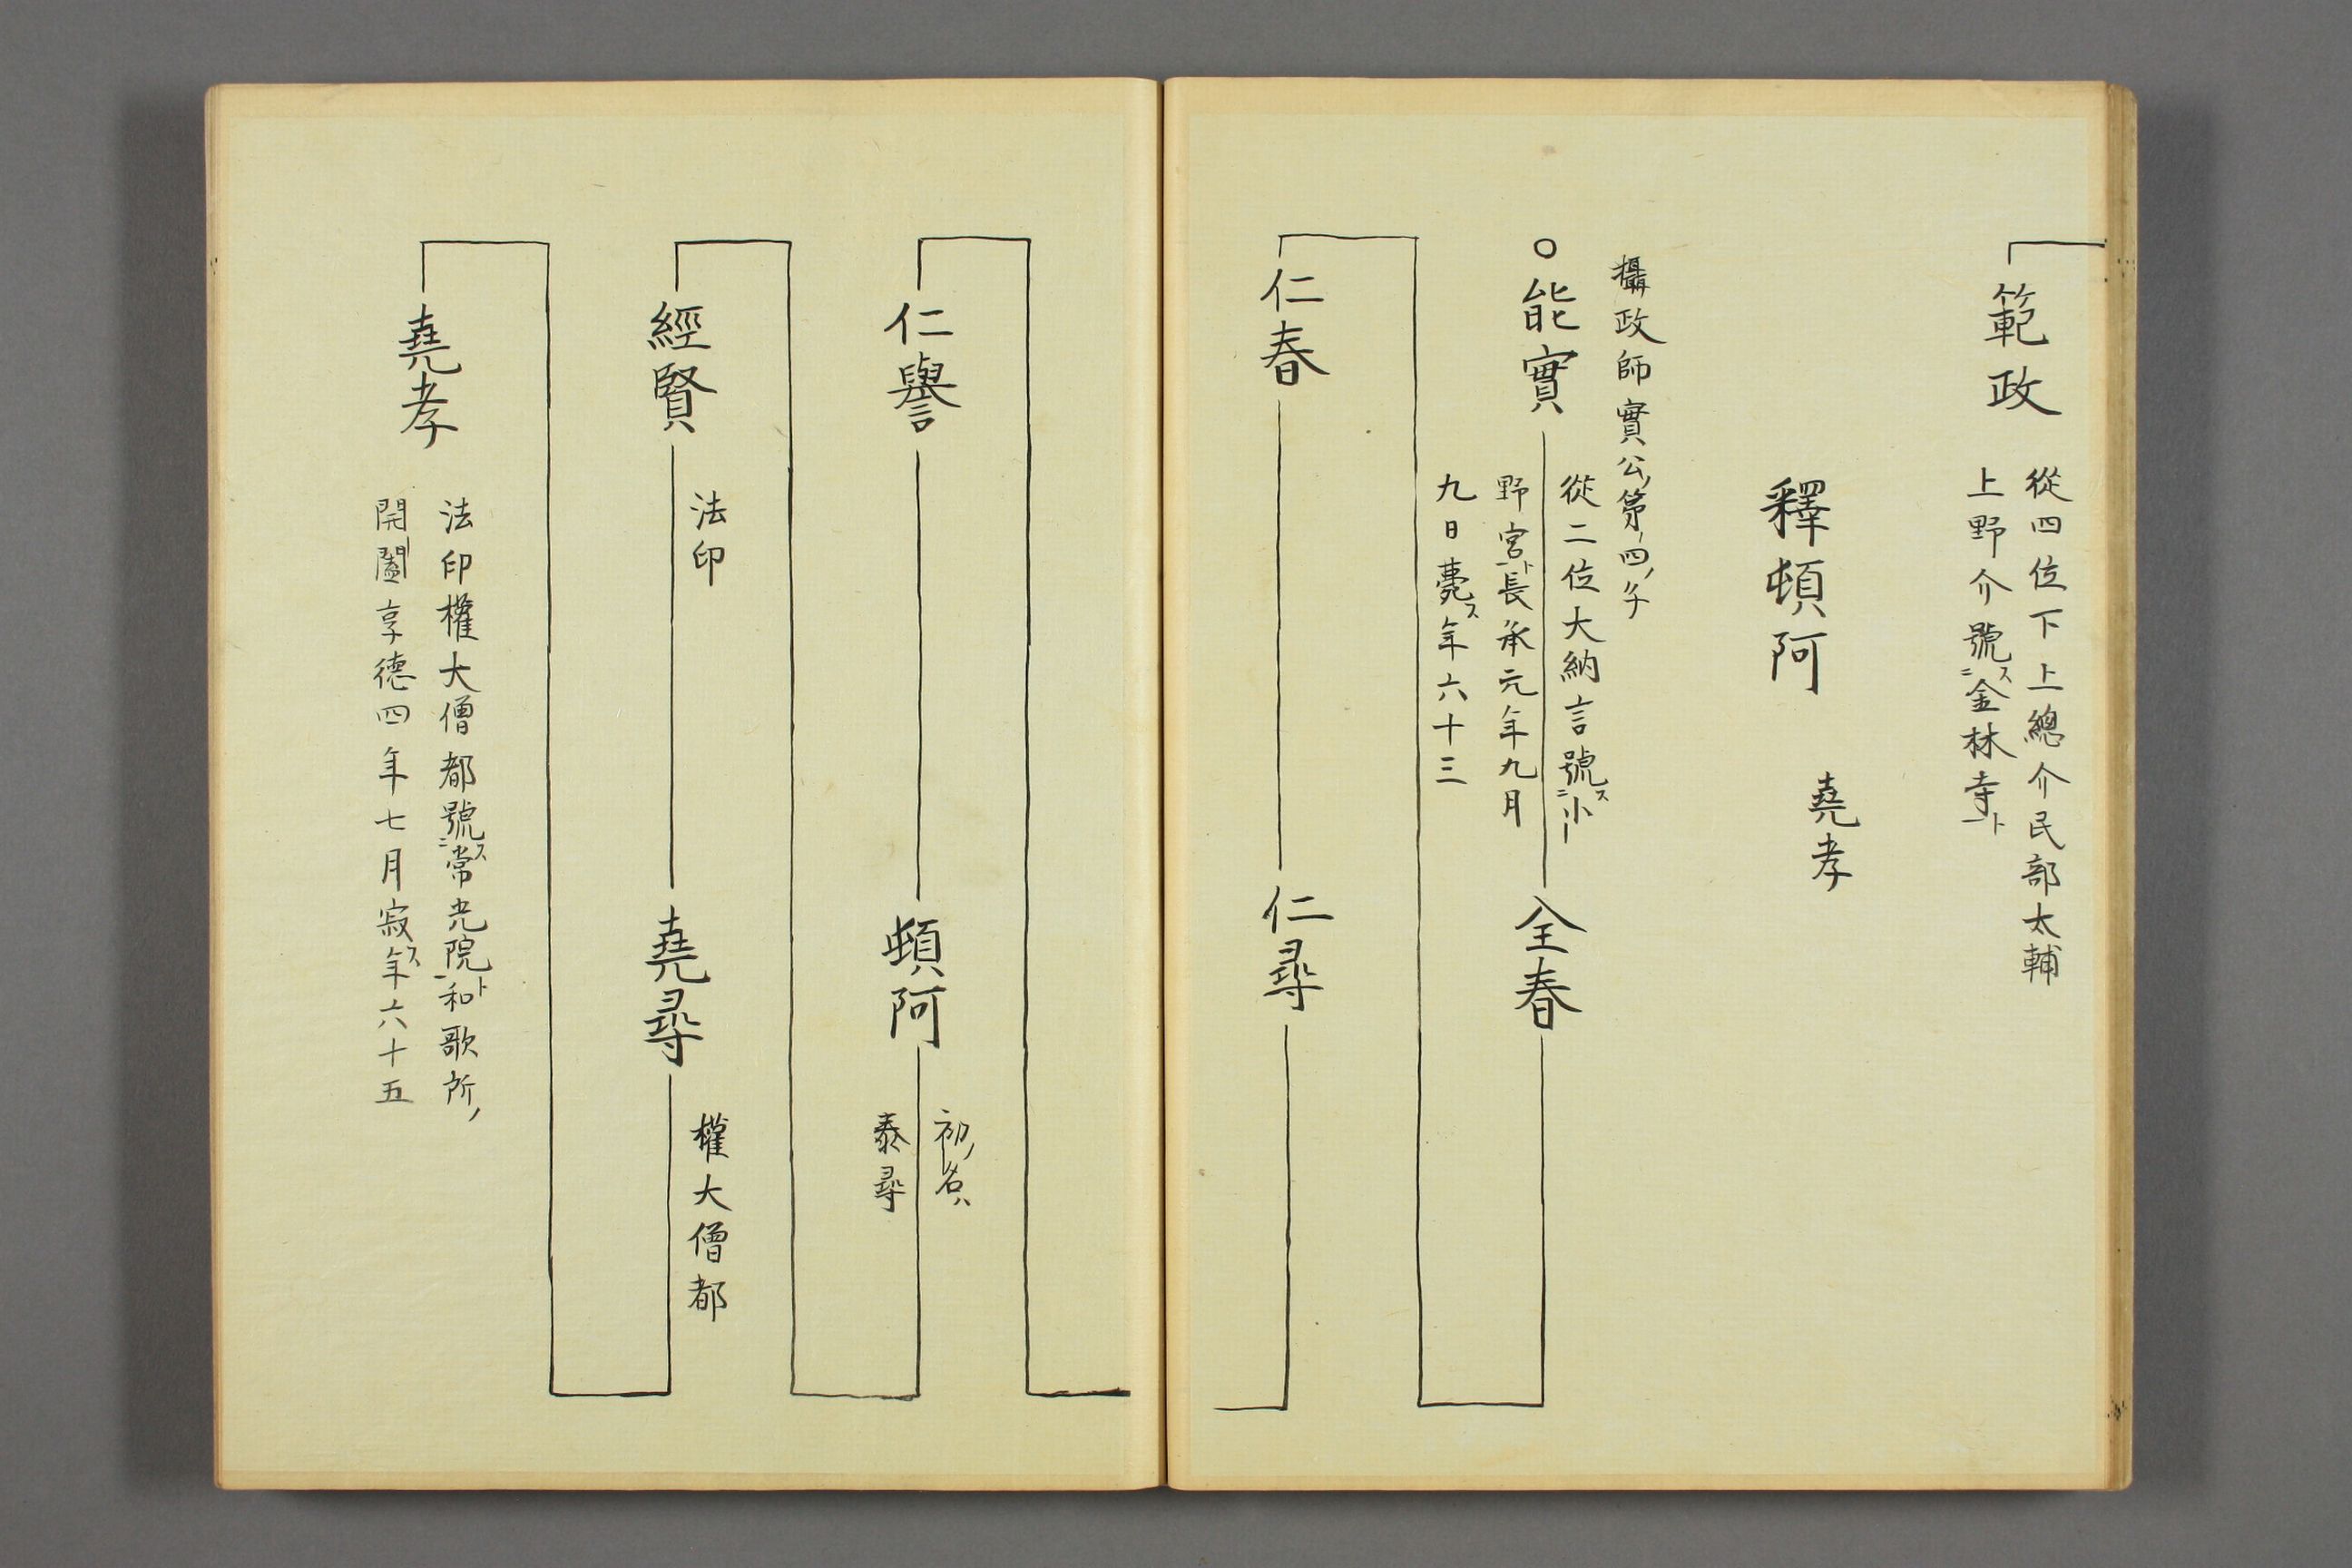 範政
從四位下上總介民部太輔
上野介號ス二金林寺一ト
釋頓阿
堯孝
攝政師實公ノ第四ノ子
○能實
從二位大納言號ス二小
野宮一ト長承元年九月
九日薨ス年六十三
全春
仁春
仁尋
仁譽
頓阿
初ノ名ハ
泰尋
經賢
法印
堯尋
權大僧都
堯孝
法印權大僧都號ス二常光院一ト和歌所ノ
開闔享德四年七月寂ス年六十五